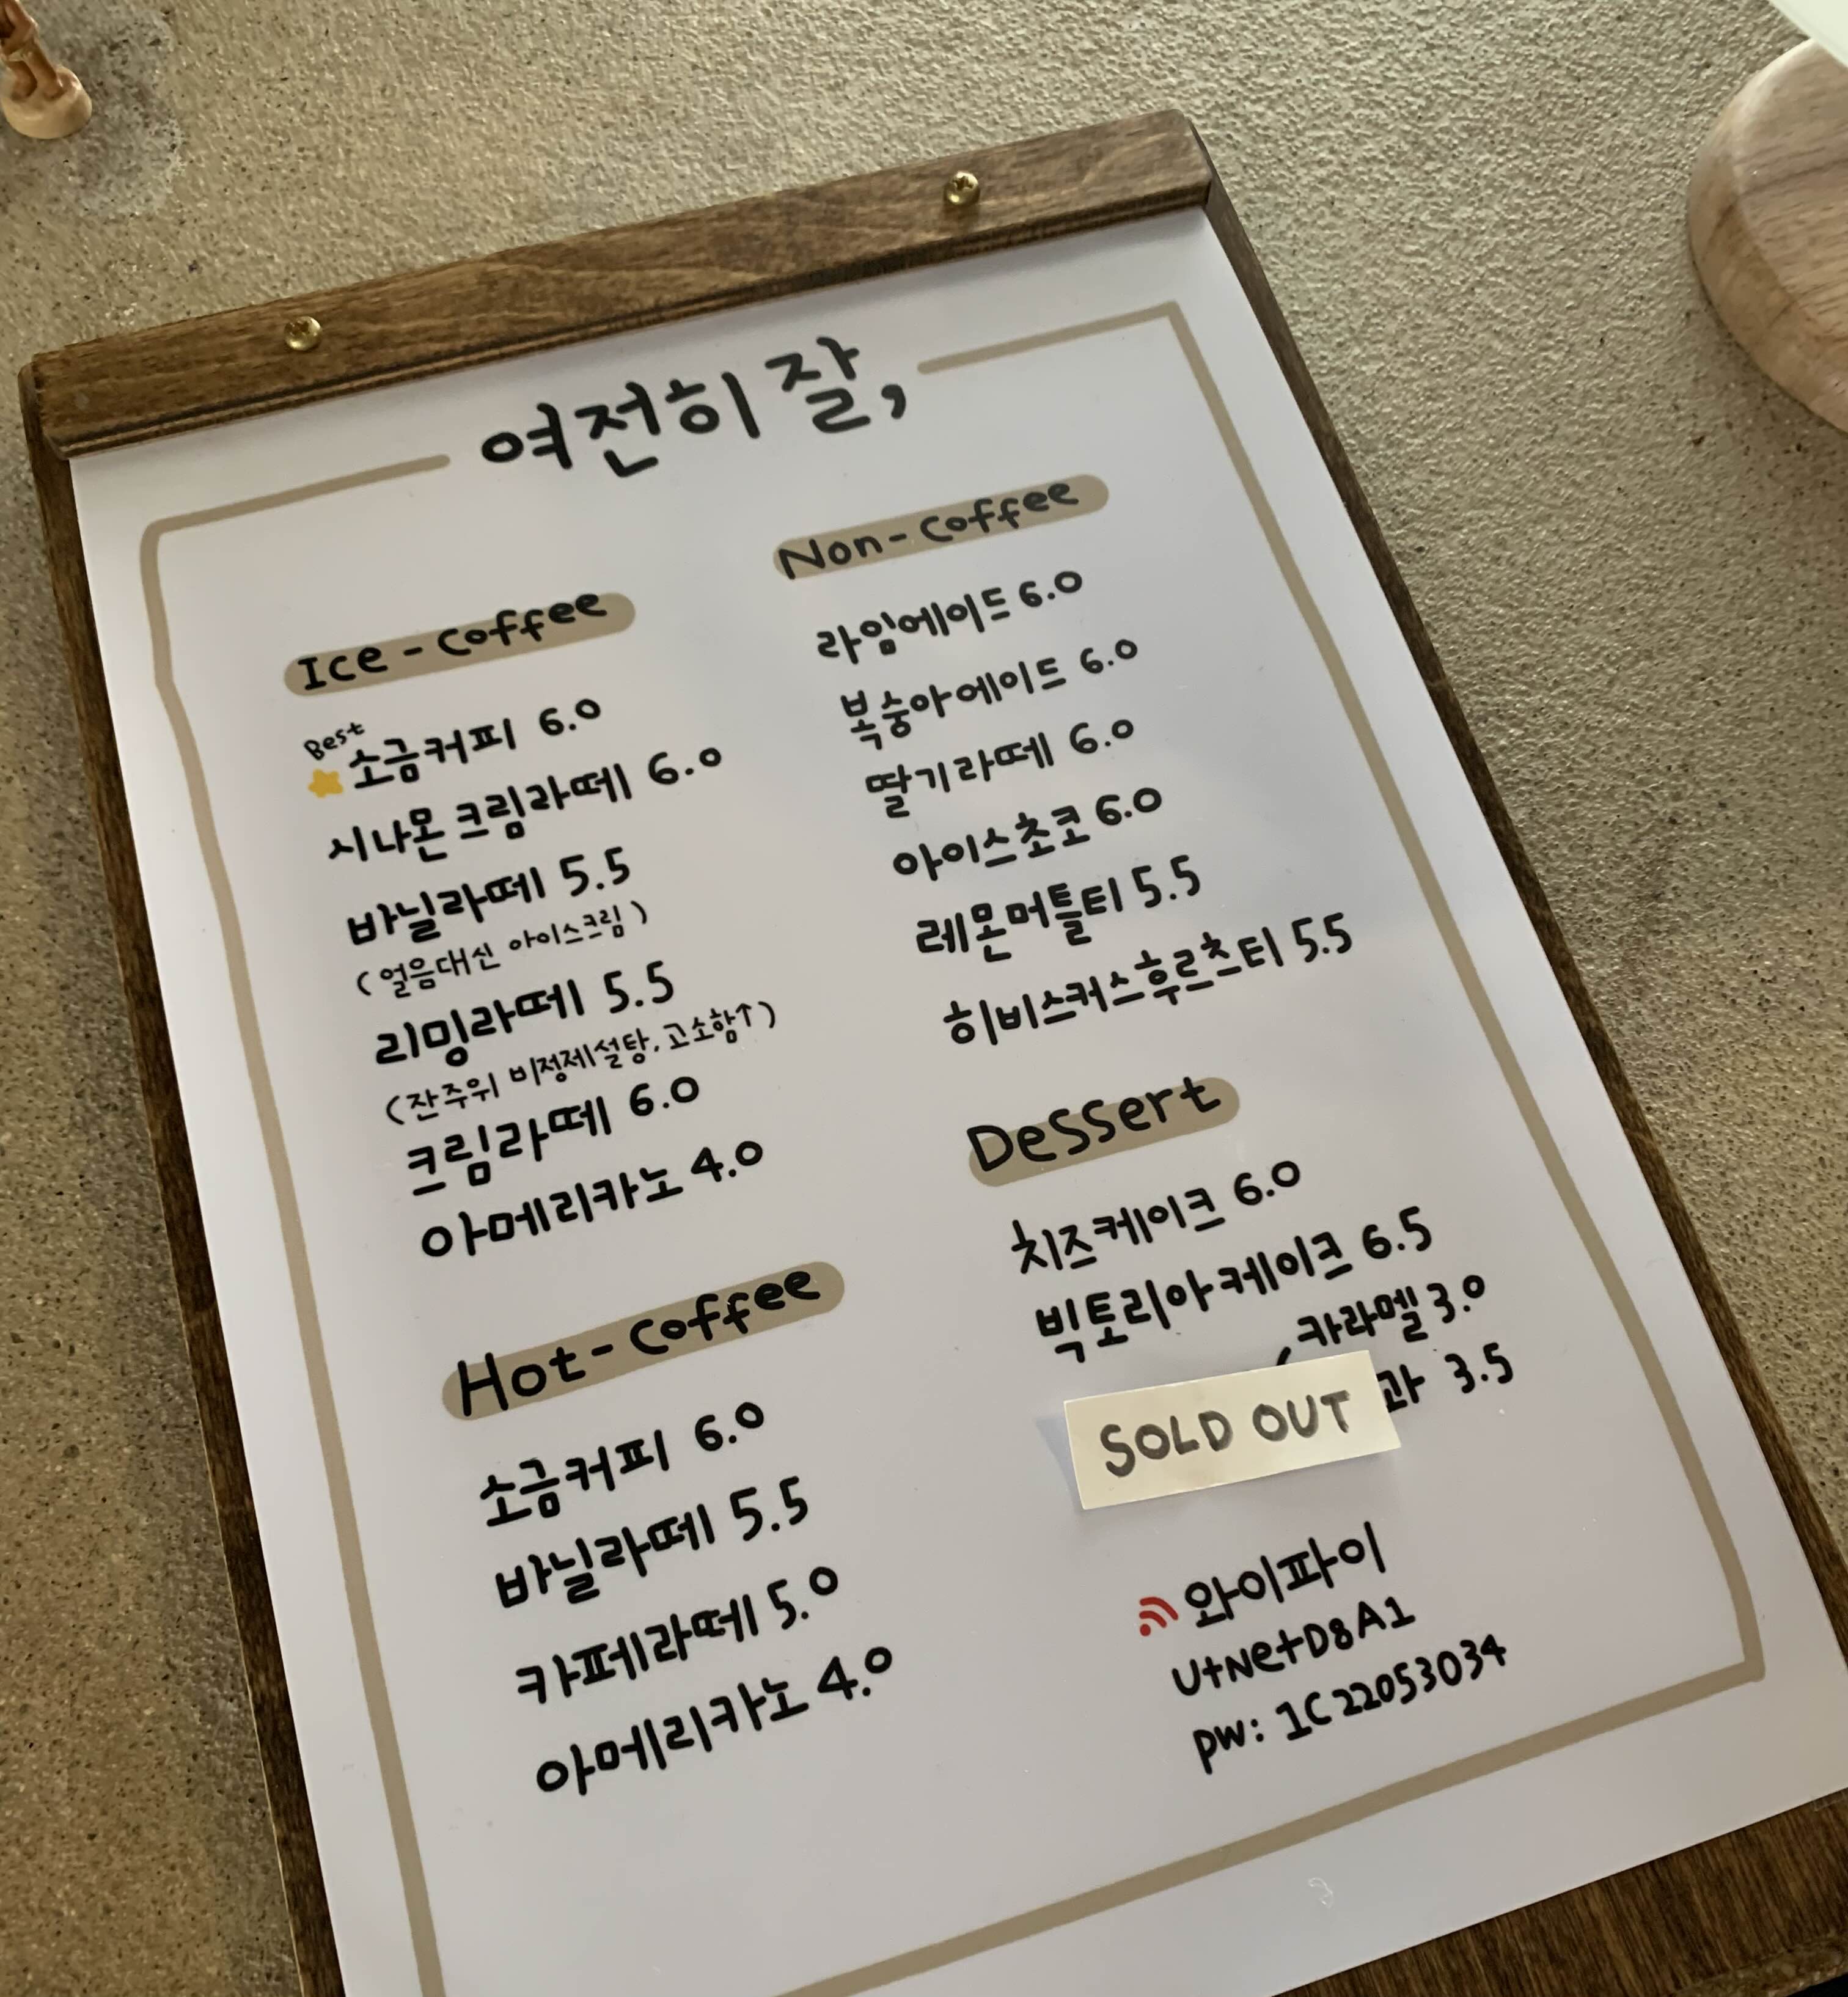 여전히 잘,
Ice-Coffee
Best
소금커피 6.0
시나몬 크림라떼 6.0
바닐라떼 5.5
(얼음대신 아이스크림)
리밍라떼 5.5
(잔주위 비정제설탕, 고소함↑)
크림라떼 6.0
아메리카노 4.0
Hot-Coffee
소금커피 6.0
바닐라떼 5.5
카페라떼 5.0
아메리카노 4.0
Non-Coffee
라임에이드 6.0
복숭아에이드 6.0
딸기라떼 6.0
아이스초코 6.0
레몬머틀티 5.5
히비스커스후르츠티 5.5
Dessert
치즈케이크 6.0
빅토리아케이크 6.5
카라멜 3.0
과 3.5
SOLD OUT
와이파이
U+NetD8A1
pw: 1C22053034